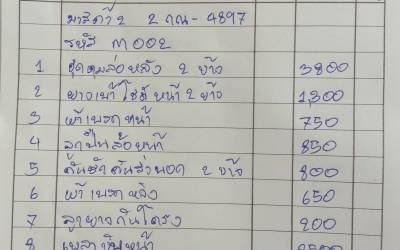 มาสด้า 2 2 กณ - 4897
รหัส M002
1 ชุดดุมล้อหลัง 2 ข้าง 3800
2 ยางเบ้าโช๊คหน้า 2 ข้าง 1,300
3 ผ้าเบรคหน้า 750
4 ลูกปืนล้อหน้า 850
5 คันชัก 2 ข้าง 800
6 ผ้าเบรคหลัง 650
7 ลูกยางกันโครง 200
8 หน้า